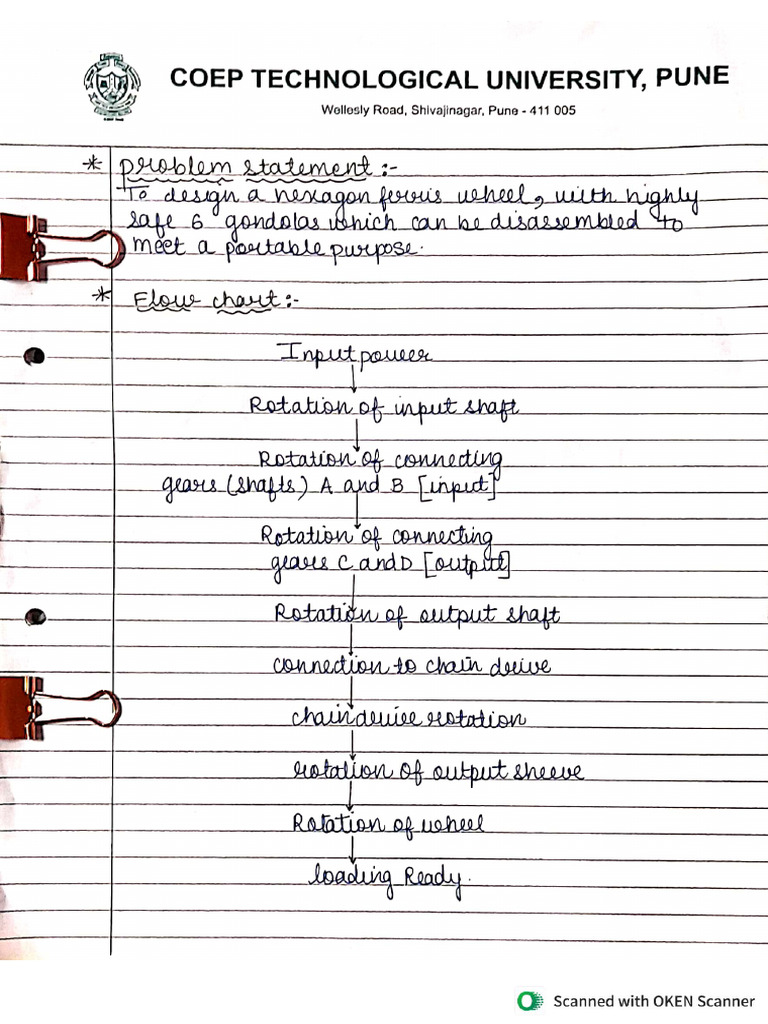 COEP TECHNOLOGICAL UNIVERSITY, PUNE
Wellesly Road, Shivajinagar, Pune - 411 005
* Problem statement :-
To design a hexagon ferris wheel, with highly
safe 6 gondolas which can be disassembled to
meet a portable purpose.
* Flow chart :-
Input power
Rotation of input shaft
Rotation of connecting
gears (shafts) A and B [input]
Rotation of connecting
gears C and D [output]
Rotation of output shaft
connection to chain drive
chain drive rotation
rotation of output sheeve
Rotation of wheel
loading Ready.
Scanned with OKEN Scanner